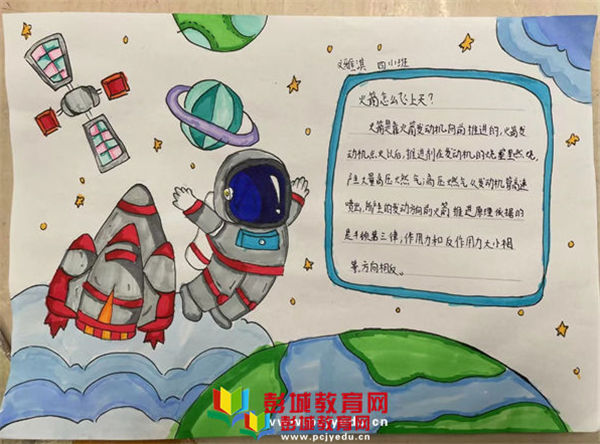 四小班
火箭怎么飞上天?
火箭是靠火箭发动机向前推进的,火箭发
动机点火以后,推进剂在发动机的烧室里燃烧,
产生大量高压燃气;高压燃气从发动机管高速
喷出,所产生的发动向前火箭推进原理依据的
是牛顿第三律,作用力和反作用力大小相
等,方向相反。
彭城教育网
www.pcjyedu.cn